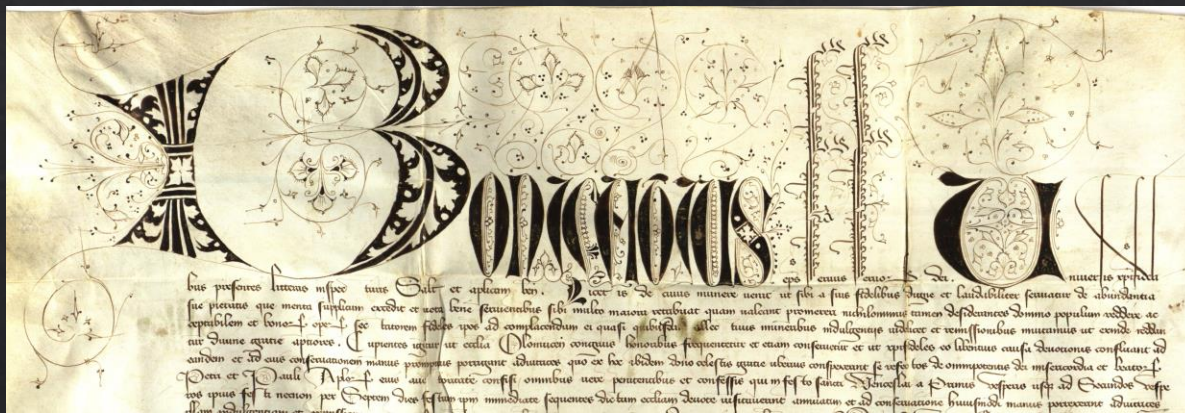 Bonifatius eps seruus seruor dei. Uniuersis xpifideli
bus presentes litteras inspecturis Salt et aplicam ben. Licet is de cuius munere uenit ut sibi a suis fidelibus digne et laudabiliter seruiatur de abundantia
sue pietatis que merita supplicum excedit et uota bene seruientibus sibi multo maiora retribuat quam ualeant promereri nichilominus tamen desiderantes domino populum reddere ac
ceptabilem et bonor oper sectatorem fideles ipos ad complacendum ei quasi quibusdam allectiuis muneribus indulgentiis uidelicet et remissionibus inuitamus ut exinde reddan
tur diuine gratie aptiores. Cupientes igitur ut ecclia Olomucen congruis honoribus frequentetur et etiam conseruetur et ut xpifideles eo libentius causa deuotionis confluant ad
eandem et ad eius conseruationem manus promptius porrigant adiutrices quo ex hoc ibidem dono celestis gratie uberius conspexerint se refectos de omnipotentis dei misericordia et beator
Petri et Pauli Aplor eius auctoritate confisi omnibus uere penitentibus et confessis qui in festo sancti Wenceslai a Primis uesperis usque ad Secundas uespe
ras ipius festi necnon per Septem dies festum ipm immediate sequentes dictam eccliam deuote uisitauerint annuatim et ad conseruationem huiusmodi manus porrexerint adiutrices